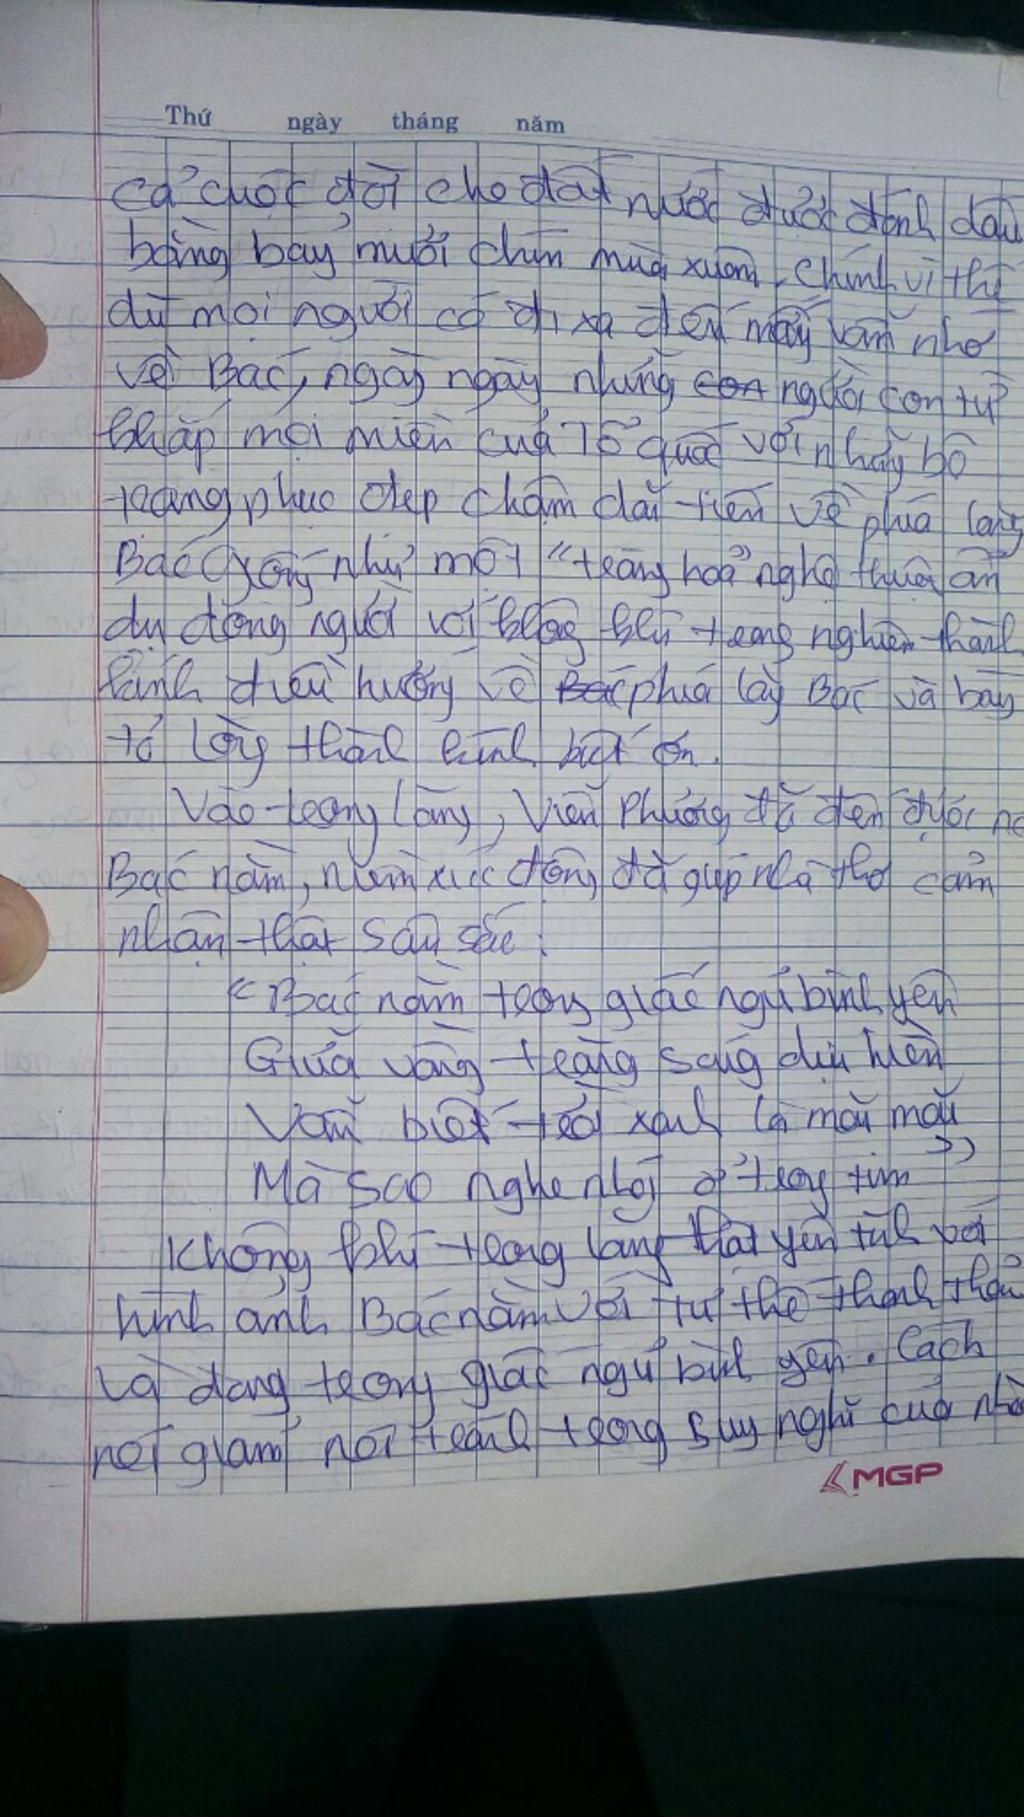 Thứ ngày tháng năm
cả cuộc đời cho đất nước được đánh dấu
bằng bảy mươi chín mùa xuân. Chính vì thế
dù mọi người có đi xa đến mấy vẫn nhớ
về Bác, ngày ngày những con người con từ
khắp mọi miền của Tổ quốc với những bộ
trang phục đẹp chậm dãi tiến về phía lăng
Bác giống như một "tràng hoa" nghệ thuật ẩn
dụ dòng người với không khí trang nghiêm thành
kính đều hướng về Bác phía lăng Bác và bày
tỏ lòng thành kính biết ơn.
Vào trong lăng, Viễn Phương đã đến được nơi
Bác nằm, niềm xúc động đã giúp nhà thơ cảm
nhận thật sâu sắc:
"Bác nằm trong giấc ngủ bình yên
Giữa vầng trăng sáng dịu hiền
Vẫn biết trời xanh là mãi mãi
Mà sao nghe nhói ở trong tim"
Không khí trong lăng thật yên tĩnh với
hình ảnh Bác nằm với tư thế thanh thản
và đang trong giấc ngủ bình yên. Cách
nói giảm nói tránh trong suy nghĩ của nhà
MGP